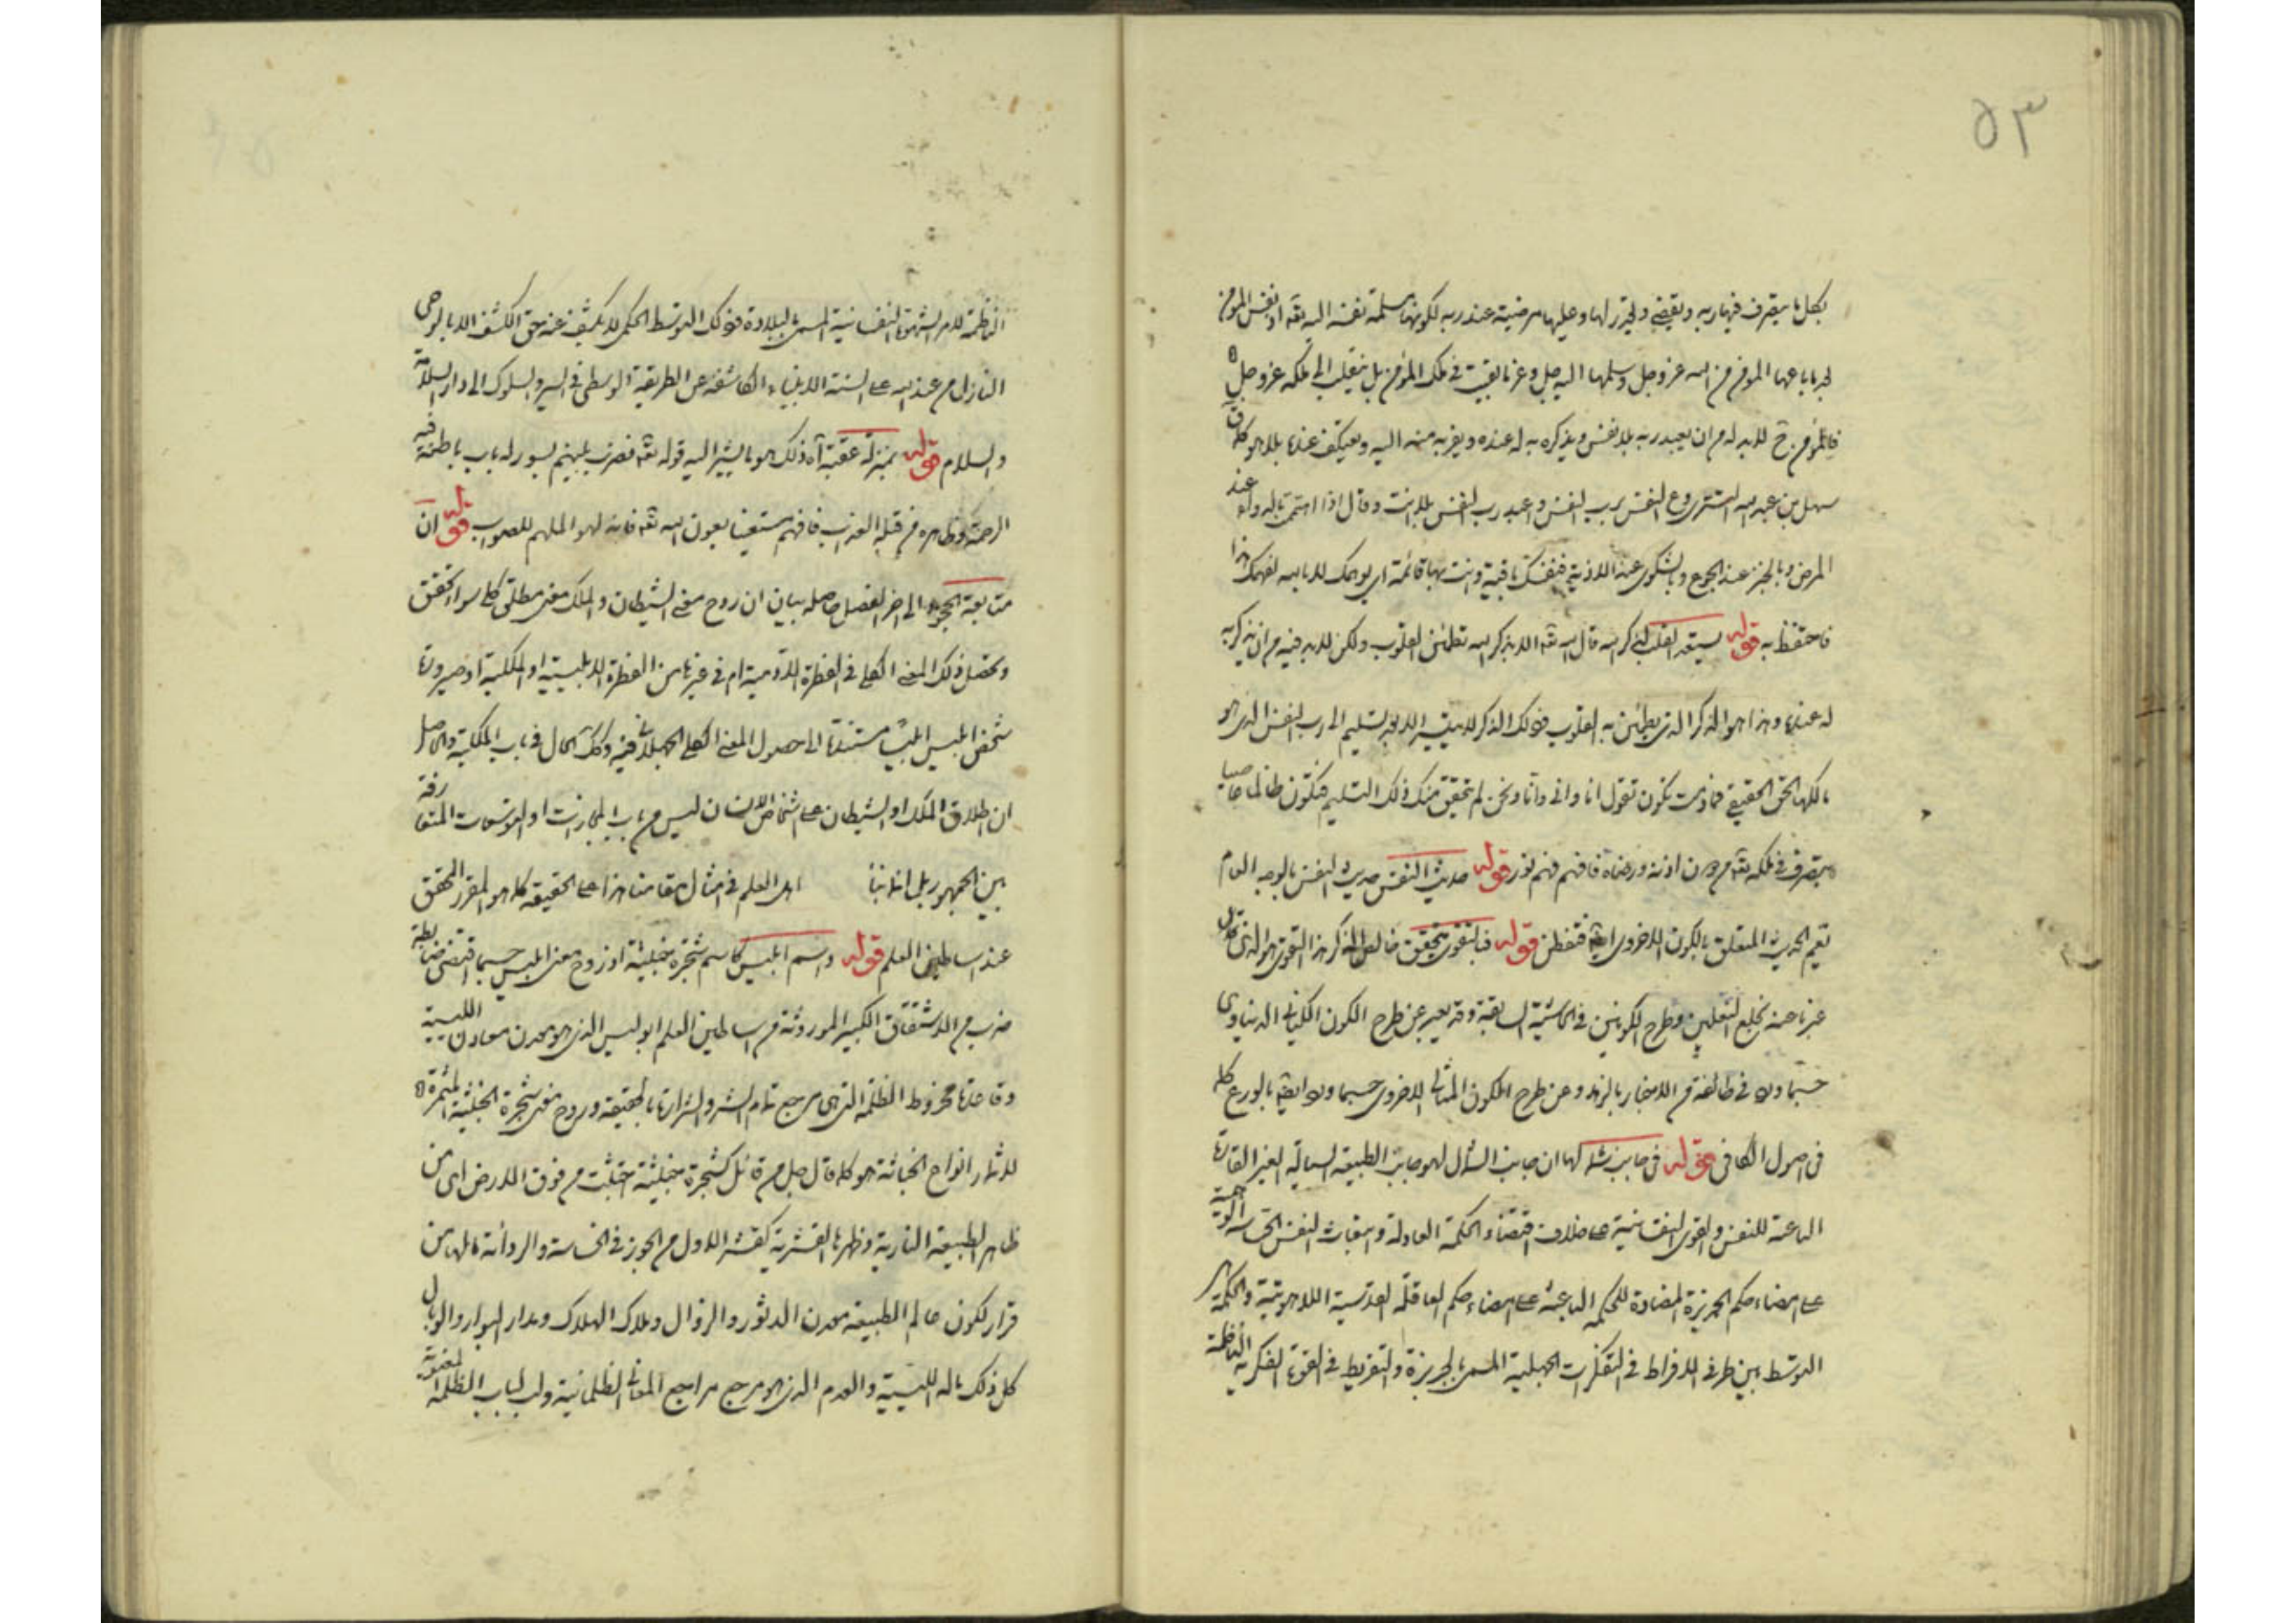 ٥٣
بكل ما يتصرف فيها ربه ويقضي ولخير لها وعليها مرضية عند ربه لكونها مسلمة نفسه اليه تعه اذ نفس المومن
لما باعها المومن من الله عز وجل وسلمها اليه جل وعز ما بقيت في ملك المؤمن بل ينقلب الى ملكه عز وجل
فالمؤمن ح لابد له من ان يعبد ربه بلا نفس ويذكره به له عنده ويقربه منه اليه ويعتكف عندنا بلا هو كما ق
سهل بن عبد الله التستري النفس برب النفس واعبد رب النفس بلا انت وقال اذا اهتمت بالدواء عند
المرض وبالخبز عند الجوع وبالشكوى عند الاذية فنفسك باقية وانت بها قائمة اي لله بالله هذا
فاحتفظ به قوله يستعد القلب لذكر الله قال الله تعه الا بذكر الله تطمئن القلوب ولكن لابد فيه من ان يذكر به
له عندنا وهذا هو الذكر الذي يطمئن به القلوب فذلك الذكر لا يتيسر الا بتسليم الى رب النفس الذي هو
مالكها الحق الحقيقي فما دمت تكون تقول انا واني وانا ونحن لم يتحقق منك ذلك التسليم فتكون ظالما غاصبا
يتصرف في ملكه تعه من دون اذنه ورضاه فافهم فهم نور قوله حديث النفس حديث النفس بالوجه العام
يعم الحديث المتعلق بالكون الاخروي ايضا فتفطن قوله فبالتقوى يتحقق خالص الذكر هذا التقوى هو الذي كان
عبرنا عنه بخلع النعلين وطرح الكونين في الحاشية السابقة وقد يعبر عن طرح الكون الكياني الدنياوي
حسبما ورد في طائفة من الاخبار بالزهد وعن طرح الكون المثالي الاخروي حسبما ورد ايضا بالورع كما
في اصول الكافي قوله في جانب شماله ان جانب الشمال لهو جانب الطبيعة السيالة الغير القارة
الداعية للنفس والقوى النفسانية على خلاف اقتضاء الحكمة العادلة
على امضاء حكم الجربزة المضادة للحكمة الباعثة على امضاء حكم العاقلة القدسية اللاهوتية والحكمة هي
التوسط بين طرفي الافراط في التفكرات الجهلية المسمى بالجربزة والتفريط في القوة الفكرية الناظمة
الناظمة لامر الشهوة النفسانية المسمى بالبلادة فذلك التوسط الحكمي لا يكشف عنه حق الكشف الا بالوحي
النازل من عند الله على السنة الانبياء الكاشفة عن الطريقة الوسطى في السير والسلوك الى دار السلامة
والسلام قوله بمنزلة عقبة آه ذلك هو ما يشير اليه قوله تعه فضرب بينهم بسور له باب باطنه فيه
الرحمة وظاهره من قبله العذاب فافهم مستعينا بعون الله تعه فانه لهو الملهم للصواب قوله ان
متابعة الى اخر الفصل حاصله بيان ان روح معنى الشيطان والملك معنى مطلق كلي سواء تحقق
وتحصل ذلك المعنى الكلي في الفطرة الادمية ام في غيرها من الفطرة الابليسية او الملكية او صيرورة
شخص ابليس ابليسا مستندة الى حصول المعنى الكلي فيه وكك الحال في باب الملكية والحاصل
ان اطلاق الملك او الشيطان على اشخاص الانسان ليس من باب المجازات او التوسعات المتعارفة
بين الجمهور بل اهل العلم في امثال مقامنا هذا على الحقيقة كما هو المقرر المحقق
عند اساطين العلم قوله واسم ابليس كاسم شجرة خبيثة اذ روح معنى ابليس حسبما اقتضى ضابطة
ضرب من الاشتقاق الكبير الموروثة من اساطين العلم ابو ليس الذي هو معدن معادن الليسية
وقاعدة مخروط الظلمة التي هي مرجع تمام الشر والشرارة بالحقيقة وروح معنى شجرة الخبيثة المثمرة
لاثمار انواع الخباثة هو كما قال جل من قائل كشجرة خبيثة اجتثت من فوق الارض اي من
ظاهر الطبيعة النارية وظهرها القشرية كقشر الاول من الجوز في الخساسة والردائة ما لها من
قرار لكون عالم الطبيعة معدن الدثور والزوال وملاك الهلاك ومدار البوار والوبال
كل ذلك مآله الليسية والعدم الذي هو مرجع مراجع المعاني الظلمانية ولب لباب الظلمة